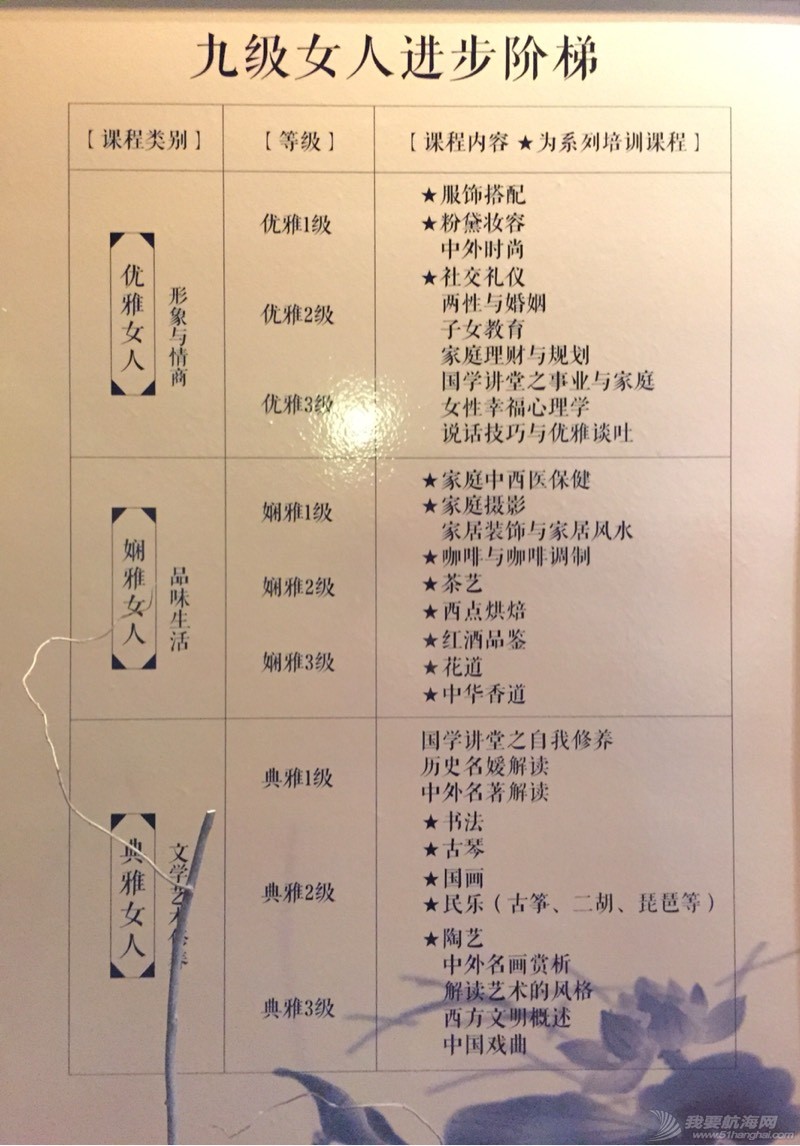 九级女人进步阶梯
【课程类别】
【等级】
【课程内容 ★为系列培训课程】
优雅女人
形象与情商
优雅1级
优雅2级
优雅3级
★服饰搭配
★粉黛妆容
中外时尚
★社交礼仪
两性与婚姻
子女教育
家庭理财与规划
国学讲堂之事业与家庭
女性幸福心理学
说话技巧与优雅谈吐
娴雅女人
品味生活
娴雅1级
娴雅2级
娴雅3级
★家庭中西医保健
★家庭摄影
家居装饰与家居风水
★咖啡与咖啡调制
★茶艺
★西点烘焙
★红酒品鉴
★花道
★中华香道
典雅女人
文学艺术
典雅1级
典雅2级
典雅3级
国学讲堂之自我修养
历史名媛解读
中外名著解读
★书法
★古琴
★国画
★民乐（古筝、二胡、琵琶等）
★陶艺
中外名画赏析
解读艺术的风格
西方文明概述
中国戏曲
我要航海网
www.51hanghai.com